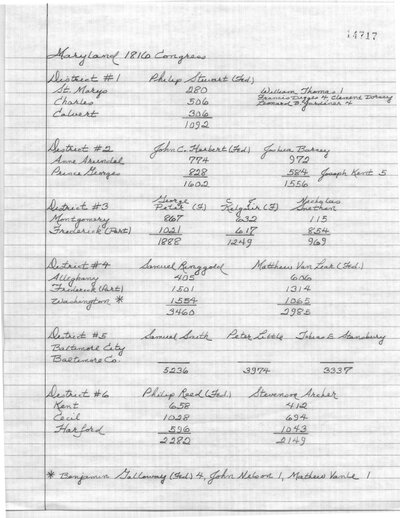 14717
Maryland 1816 Congress
District #1 Philip Stewart (Fed)
St. Marys 280 William Thomas 1
Charles 506 Francis Digges 4, Clement Dorsey
Calvert 306 Leonard B. Gardener 4
1092
District #2 John C. Herbert (Fed) Joshua Barney
Anne Arundel 774 972
Prince Georges 828 584 Joseph Kent 5
1602 1556
District #3 George Peter (F) (F) Nicholas Snethen
Montgomery 867 632 115
Frederick (Part) 1021 617 854
1888 1249 969
District #4 Samuel Ringgold Matthew Van Lear (Fed.)
Alleghany 405 606
Frederick (Part) 1501 1314
Washington * 1554 1065
3460 2985
District #5 Samuel Smith Peter Little Tobias E Stansbury
Baltimore City
Baltimore Co.
5236 3974 3337
District #6 Philip Reed (Fed.) Stevenson Archer
Kent 658 412
Cecil 1028 694
Harford 596 1043
2282 2149
* Benjamin Galloway (Fed) 4, John Nelson 1, Mathew 1